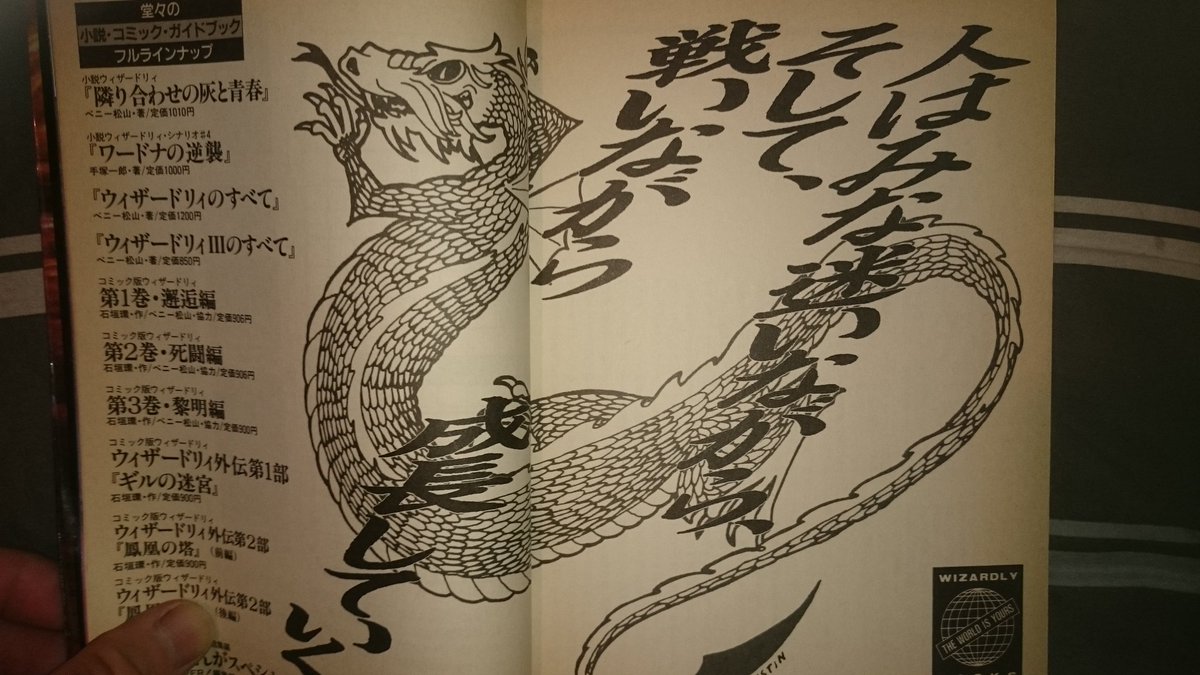 人はみな迷いながら、
そして、
戦いながら
成長していく
堂々の
小説・コミック・ガイドブック
フルラインナップ
小説ウィザードリィ
『隣り合わせの灰と青春』
ベニー松山・著/定価1010円
小説ウィザードリィ・シナリオ#4
『ワードナの逆襲』
手塚一郎・著/定価1000円
『ウィザードリィのすべて』
ベニー松山・著/定価1200円
『ウィザードリィIIIのすべて』
ベニー松山・著/定価850円
コミック版ウィザードリィ
第1巻・邂逅編
石垣環・作/ベニー松山・協力/定価906円
コミック版ウィザードリィ
第2巻・死闘編
石垣環・作/ベニー松山・協力/定価906円
コミック版ウィザードリィ
第3巻・黎明編
石垣環・作/ベニー松山・協力/定価900円
コミック版ウィザードリィ
ウィザードリィ外伝第1部
『ギルの迷宮』
石垣環・作/定価900円
コミック版ウィザードリィ
ウィザードリィ外伝第2部
『鳳凰の塔』(前編)
石垣環・作/定価900円
コミック版ウィザードリィ
ウィザードリィ外伝第2部
(後編)
WIZARDLY
THE WORLD IS YOURS